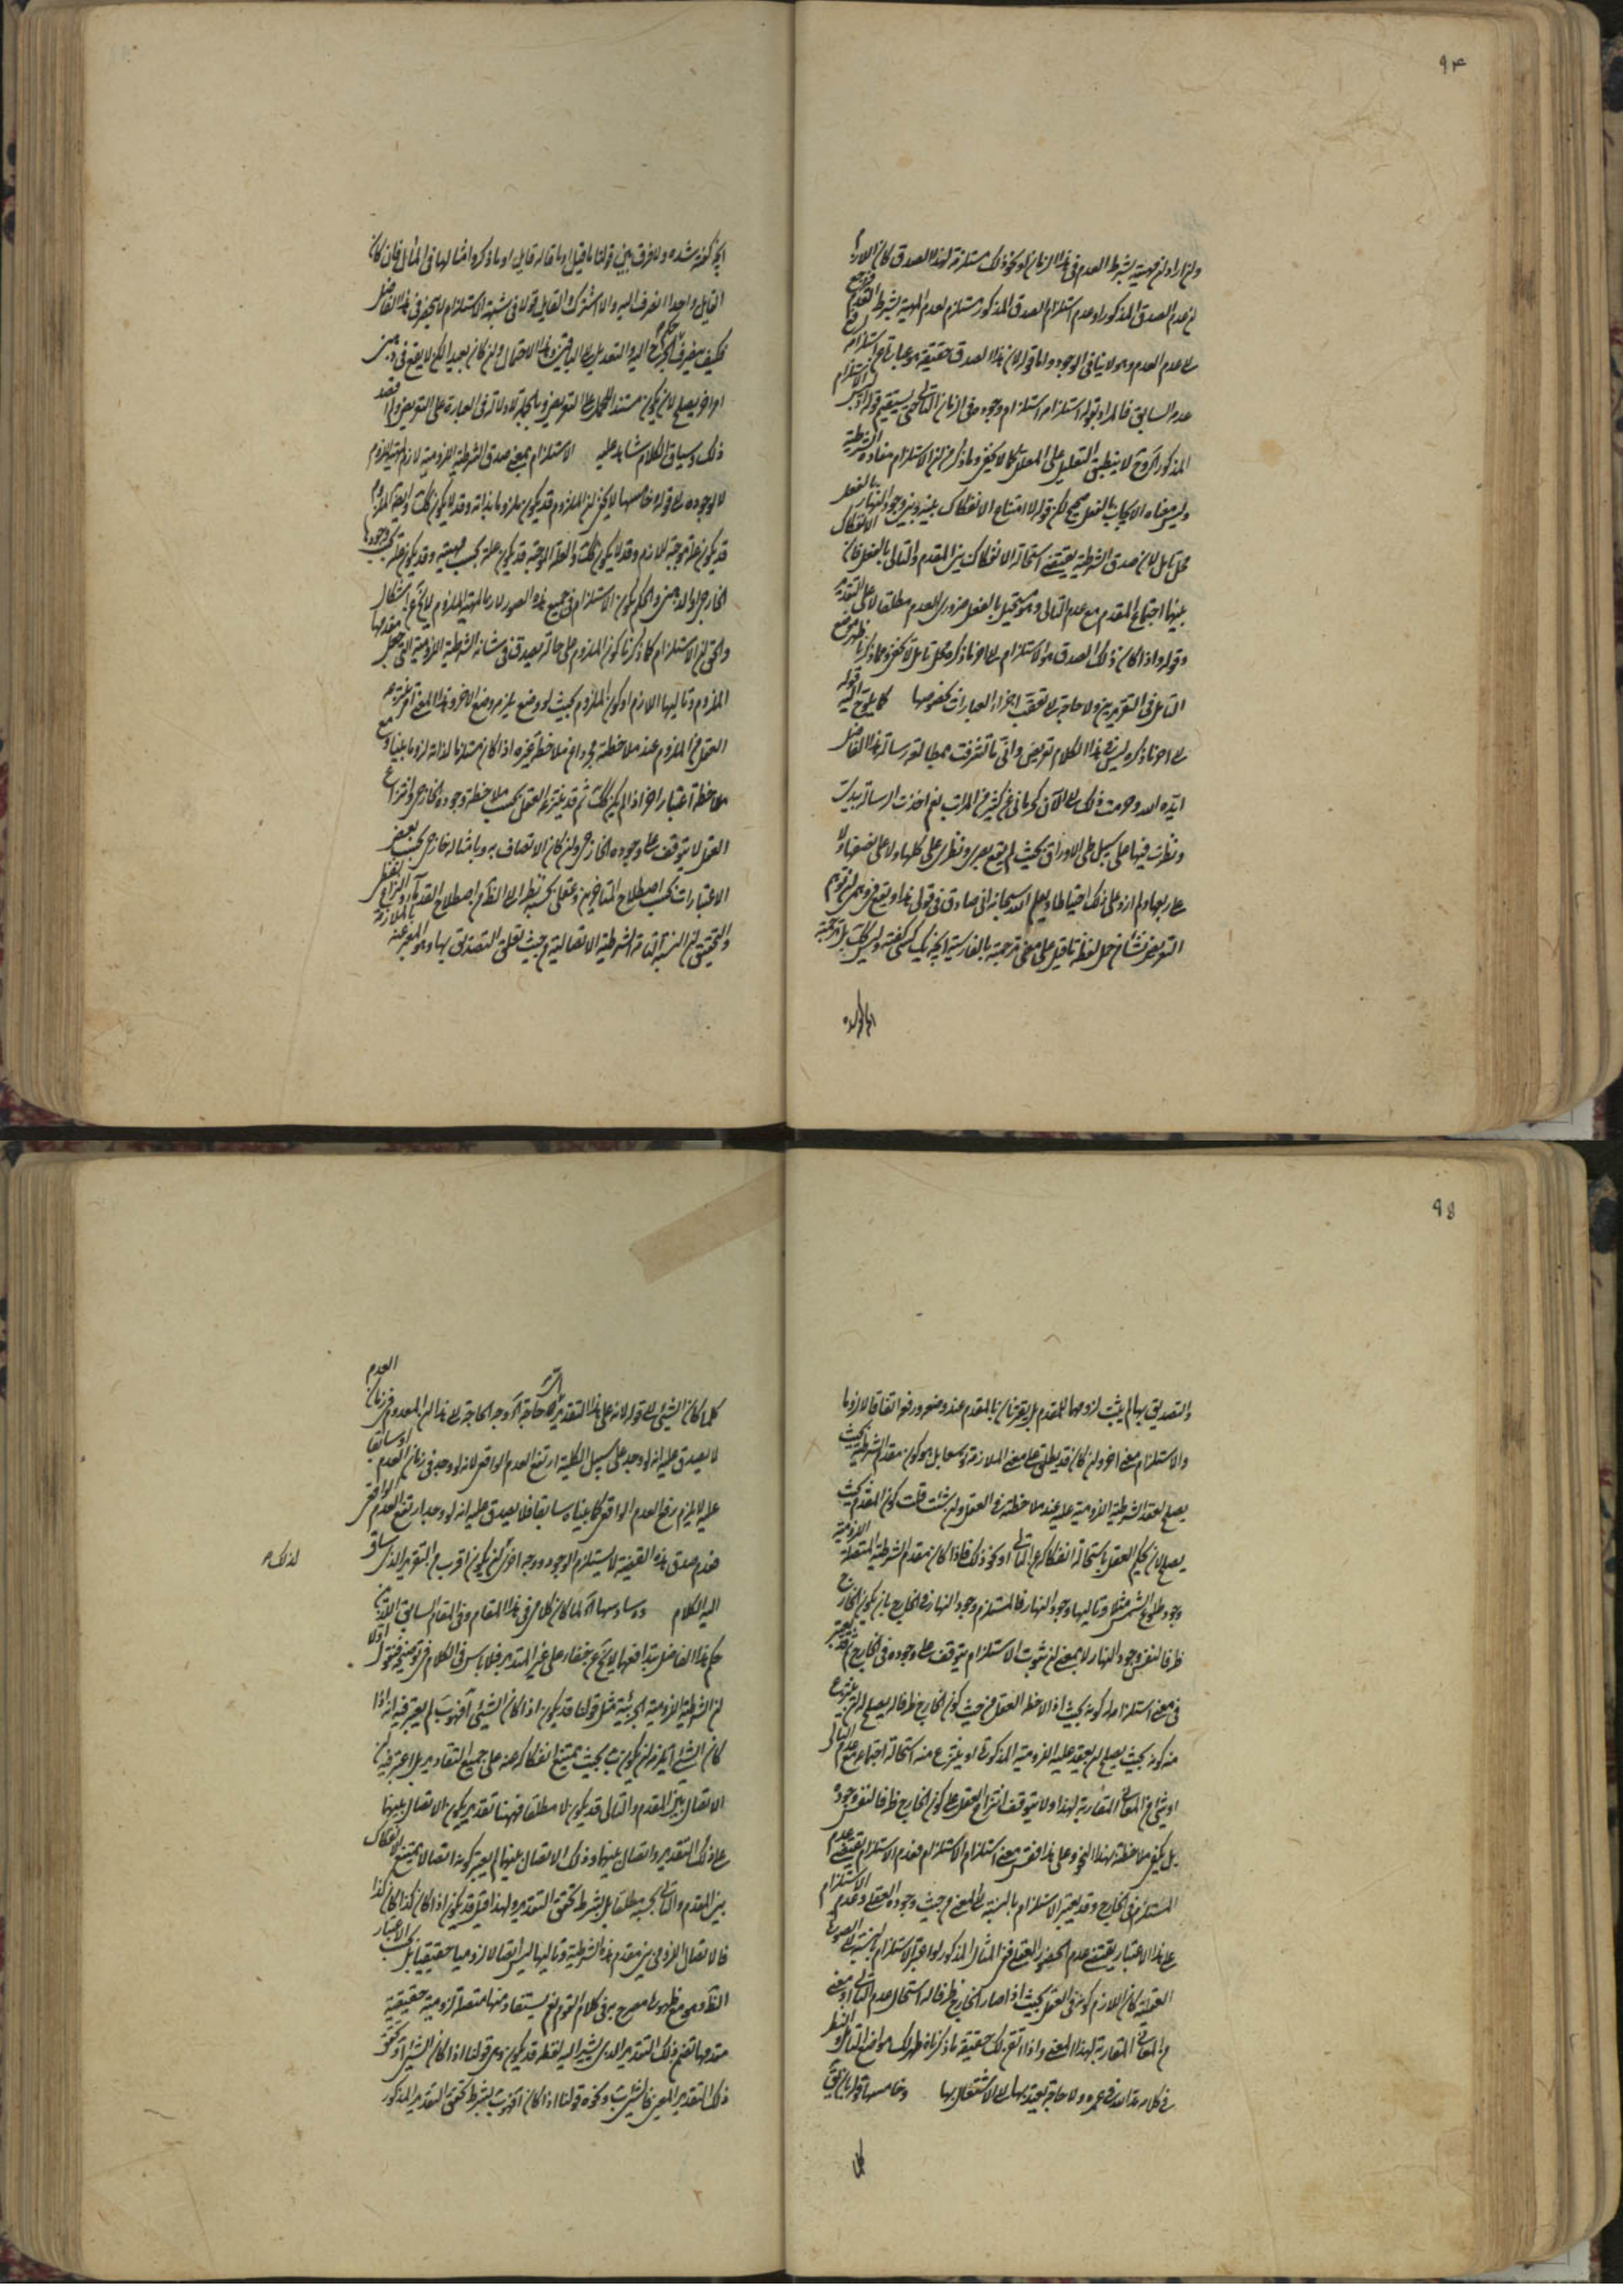 ۹۴
ولو اراد ان مهية بشرط العدم فى هذا الزمان او نحو ذلك مستلزمة لهذا الصدق كان اللازم
من عدم الصدق المذكور او عدم استلزام الصدق المذكور مستلزم لعدم المهية بشرط العدم
الى عدم العدم وهو لا ينافى الوجود واما قوله لان هذا الصدق حقيقة هو عبارة عن استلزام
عدم السابق فالمراد بقوله استلزام استلزام وجوده فى الزمان الثانى حتى يستقيم قوله
المذكور لا ينطبق التعليل على المعلل كما لا يخفى وما ذكر من ان الاستلزام مفاده الشرطية
وليس معناه الايجاب بالفعل صحيح لكن قوله لامتناع الانفكاك بينه وبين وجود النهار بالفعل
محل تامل لان صدق الشرطية يقتضى استحالة الانفكاك بين المقدم والتالى بالفعل فان الانفكاك
بينهما اجتماع المقدم مع عدم التالى وهو مستحيل بالفعل ضرورى العدم مطلقا لا على التقدير
وقوله واذا كان ذلك الصدق هو الاستلزام الى اخر ما ذكره محل تامل لا يخفى وما ذكرنا ظهر
التامل فى التقريرين ولا حاجة الى تعقب اجزاء العبارات بخصوصها كما يلوح اليه قوله
الى اخر ما ذكره وليس فى هذا الكلام تعريض وانى ما تشرفت بمطالعة رسالة هذا الفاضل
ايده الله وحرمت ذلك الى الآن كحرمانى عن كثير من المراتب نعم اخذت الرسالة بيدى
ونظرت فيها على سبيل طى الاوراق بحيث لم يقع بصرى ونظرى على كلها ولا على نصفها ولا
على ربعها ولم ازد على ذلك احتياطا ويعلم الله سبحانه انى صادق فى قولى هذا
التعريض نشأ من حمل لفظة ما قيل على معنى ترجمته بالفارسية آنچه يك كسى گفته وليس كذلك بل ترجمته
آنچه گفته شده ولا فرق بين قولنا ما قيل او ما قاله قايل او ما ذكروا امثالها فى المآل فان كان
القايل واحدا انصرف اليه والا اشترك القايل قولا فى شبهة الاستلزام لا ينحصر فى هذا الفاضل
فكيف ينصرف الجرح اليه والتعدى الى الباقين وهذا الاحتمال وان كان بعيدا لكن لا يقع فى ذهن
امر اخر يصلح لان يكون مستندا للحمل على التعريض وبالجملة لا دلالة فى العبارة على التعريض ولا قصد
ذلك وسياق الكلام شاهد عليه الاستلزام بمعنى صدق الشرطية اللزومية لازم لمهية الملزوم
لا لوجوده الى قوله خامسها لا يخفى ان الملزوم قد يكون ملزوما بذاته وقد لا يكون كذلك
قد يكون علة موجبة للازم وقد لا يكون كذلك والعلة الموجبة قد يكون علة بحسب مهيته وقد يكون علة بحسب وجودها
الخارجى او الذهنى والحكم بكون الاستلزام فى جميع هذه الصور لازما لمهية الملزوم لا يخ عن اشكال
والحق ان الاستلزام كما ذكرنا كون الملزوم على حالة يصدق فى شانه الشرطية اللزومية التى جعل مقدمها
الملزوم وتاليها اللازم او كون الملزوم بحيث لو وضع يلزم وضع الاخر وهذا المعنى
العقل من الملزوم عند ملاحظته مجردا عن ملاحظة غيره اذا كان مستلزما لذاته لزوما بينا
ملاحظة اعتبار اخر اذا لم يكن كذلك ثم قد ينتزعه العقل بحسب ملاحظة وجوده الخارجى وانتزاع
العقل لا يتوقف على وجوده الخارجى وان كان الاتصاف به وبامثاله خارجى بحسب بعض
الاعتبارات بحسب اصطلاح المتاخرين وعقلى بحسبه نظرا الى اصطلاح القدماء
والتحقيق ان النسبة التامة الشرطية الاتصالية من حيث تعلق التصديق بها هو المعبر عنه بالملازمة
۹۵
والتصديق بها لم يثبت لزومها للمقدم بل يقترنان بالمقدم عند وضعه ورفعه اتفاقا لا لزوما
والاستلزام معنى اخر وان كان قد يطلق على معنى الملازمة توسعا بل هو كون مقدم الشرطية بحيث
يصلح لعقد الشرطية اللزومية عليه عند ملاحظته فى العقل وان شئت قلت كون المقدم بحيث
يصلح لان يحكم العقل باستحالة انفكاكه عن التالى او نحو ذلك فاذا كان مقدم الشرطية المتصلة اللزومية
وجود طلوع الشمس مثلا وتاليها وجود النهار فالمستلزم وجود النهار فى الخارج بان يكون الخارج
ظرفا لنفس وجود النهار لا بمعنى ان ثبوت الاستلزام يتوقف على وجوده فى الخارج
فى معنى استلزامه له كونه بحيث اذا لاحظه العقل من حيث كون الخارج ظرفا له يصلح لان ينتزع
منه كونه بحيث يصلح لان يعقد عليه اللزومية المذكورة او ينتزع منه استحالة اجتماعه مع عدم التالى
او شئ من المعانى المقاربة لهذا ولا يتوقف انتزاع العقل على كون الخارج ظرفا لنفس وجوده
بل يكفى ملاحظته بهذا النحو وعلى هذا فقس معنى استلزام الاستلزام فعدم الاستلزام يقتضى عدم
المستلزم فى الخارج وقد يعتبر الاستلزام بالنسبة الى المعنى من حيث وجوده العقلى وعدم الاستلزام
على هذا الاعتبار يقتضى عدم الحضور العقلى ففى المثال المذكور لو اعتبر الاستلزام بالنسبة الى الصورة
العقلية كان اللازم كونه فى العقل بحيث اذا صار الخارج ظرفا له استحال عدم التالى او معنى
من المعانى المقاربة لهذا المعنى واذا اتقنت لك حقيقة ما ذكرناه ظهر لك مواضع التامل والنظر
فى كلامه مد الله فى عمره ولا حاجة يعتد بها الى الاشتغال بها وخامسها قوله بان يق
كلما
كلما كان الشئ الى قوله لانه على هذا التقدير آه حاجة آه وجه الحاجة الى هذا ان المعدوم فى زمان العدم
لا يصدق عليه انه لو وجد على سبيل الكلية ارتفع العدم الواقعى لانه لو وجد فى زمان العدم او سابقا
عليه لا يلزم رفع العدم الواقعى كما بيناه سابقا فلا يصدق عليه انه لو وجد ارتفع العدم الواقعى
فعدم صدق هذه القضية لا يستلزم الوجود ووجه اخر ان يكون اقرب من التقرير الذى ساق
لذلك
اليه الكلام وسادسها آه لما كان كلامى فى هذا المقام وفى المقام السابق اللذين
حكم هذا الفاضل بتدافعهما لا يخ عن خفاء على غير المتدبر فلا باس فى الكلام فى توضيحه فنقول اولا
ان الشرطية اللزومية الجزئية مثل قولنا قد يكون اذا كان الشئ آ فهو ب لم يعتبر فيه انه اذا
كان الشئ آ يلزم ان يكون ب بحيث يمتنع انفكاكه عنه على جميع التقادير بل اعتبر فيه ان
الاتصال بين المقدم والتالى قد يكون لا مطلقا فههنا تقدير يكون الاتصال بينهما
على ذلك التقدير واتصال بينهما وذلك الاتصال بينهما لم يعتبر كونه اتصالا يمتنع الانفكاك
بين المقدم والتالى بحسبه مطلقا بل بشرط تحقق التقدير ولهذا قيل قد يكون اذا كان كذا كان كذا
فالاتصال اللزومى بين مقدم هذه الشرطية وتاليها ليس اتصالا لزوميا حقيقيا بل بحسب الاعتبار
التقديرى مع ظهوره مصرح به فى كلام القوم نعم يستفاد منها متصلة لزومية حقيقية
مقدمها تضم ذلك التقدير الذى يشير اليه لفظة قد يكون وهى قولنا اذا كان الشئ آ وتحقق
ذلك التقدير المعين فالشئ ب ونحوه قولنا اذا كان آ فهو ب بشرط تحقق التقدير المذكور